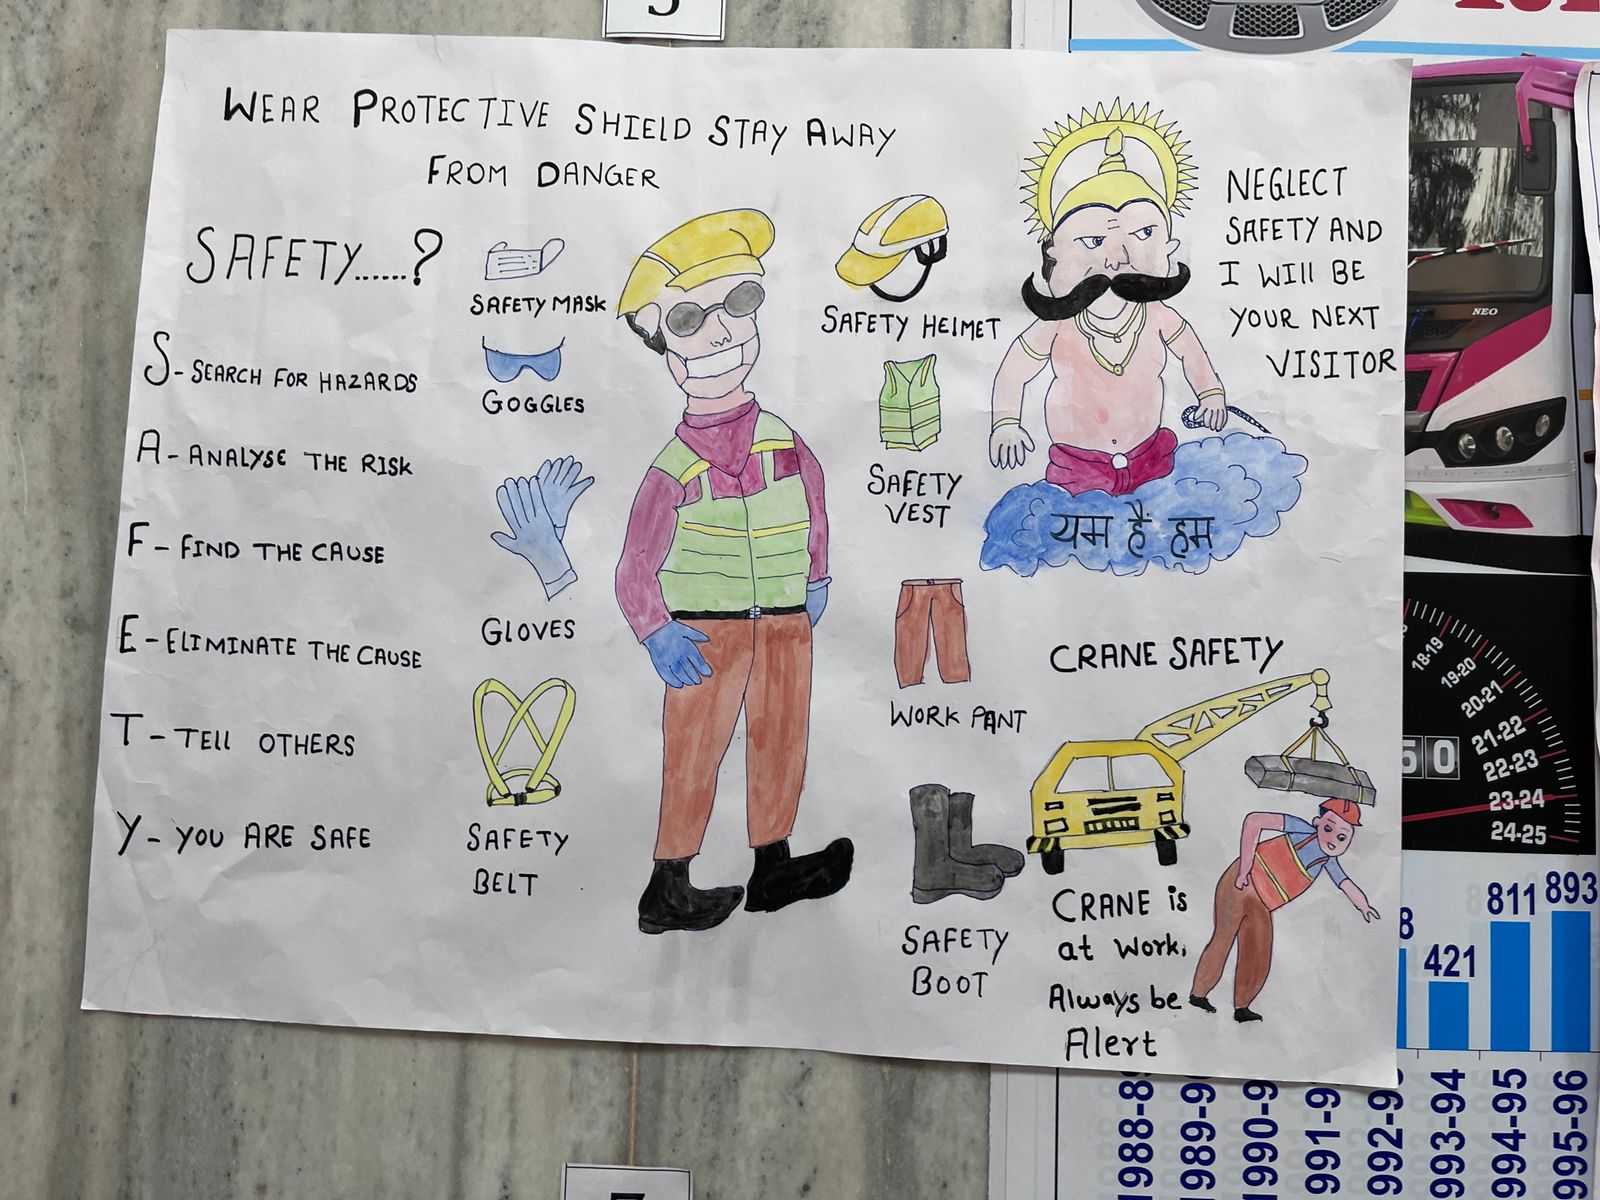 WEAR PROTECTIVE SHIELD STAY AWAY
FROM DANGER
SAFETY......?
S - SEARCH FOR HAZARDS
A - ANALYSE THE RISK
F - FIND THE CAUSE
E - ELIMINATE THE CAUSE
T - TELL OTHERS
Y - YOU ARE SAFE
SAFETY MASK
GOGGLES
GLOVES
SAFETY
BELT
SAFETY HElMET
SAFETY
VEST
WORK PANT
SAFETY
BOOT
NEGLECT
SAFETY AND
I WILL BE
YOUR NEXT
VISITOR
यम हैं हम
CRANE SAFETY
CRANE is
at Work,
Always be
Alert
NEO
18-19
19-20
20-21
21-22
22-23
23-24
24-25
50
421
811
893
993-94
994-95
995-96